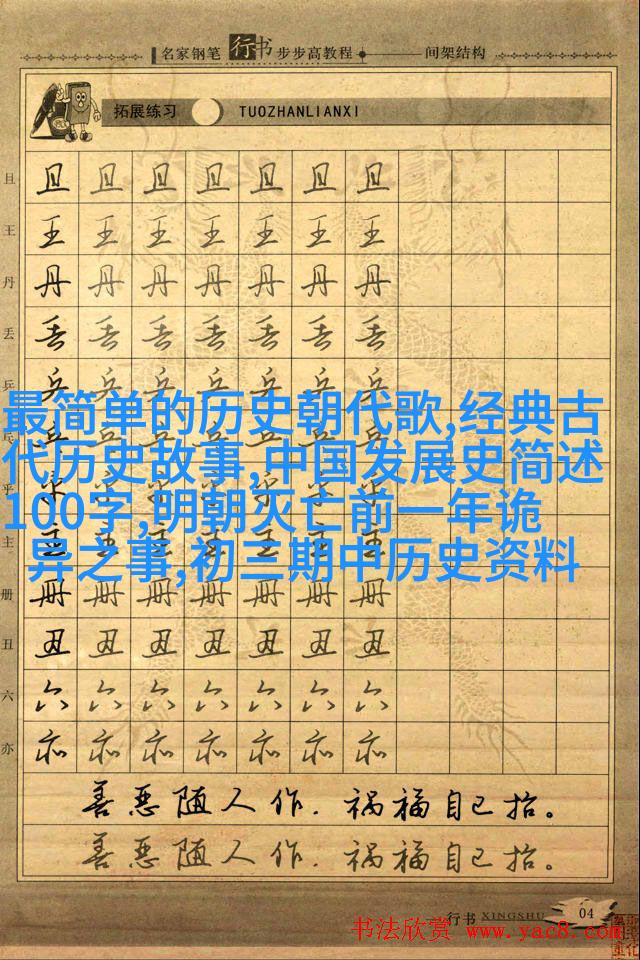 名家钢笔行书步步高教程 间架结构
拓展练习 TUOZHANLIANXI
且 且 且 且 且 且 且 且
王 王 王 王 王 王 王 王
丹 丹 丹 丹 丹 丹 丹 丹
丢 丢 丢 丢 丢 丢 丢 丢
乒 乒 乒 乒 乒 乒 乒 乒
最简单的历史朝代歌,经典古
代历史故事,中国发展史简述
100字,明朝灭亡前一年诡
异之事,初三期中历史资料
乎 乎 乎 乎 乎 乎 乎 乎
主 主 主 主 主 主 主 主
册 册 册 册 册 册 册 册
丑 丑 丑 丑 丑 丑 丑 丑
六 六 六 六 六 六 六 六
亦 亦 亦 亦 亦 亦 亦 亦
善恶随人作.祸福自己招。
善恶随人作.祸福自己招。
行书 XINGSHU 04
书法欣赏 www.yac8.com